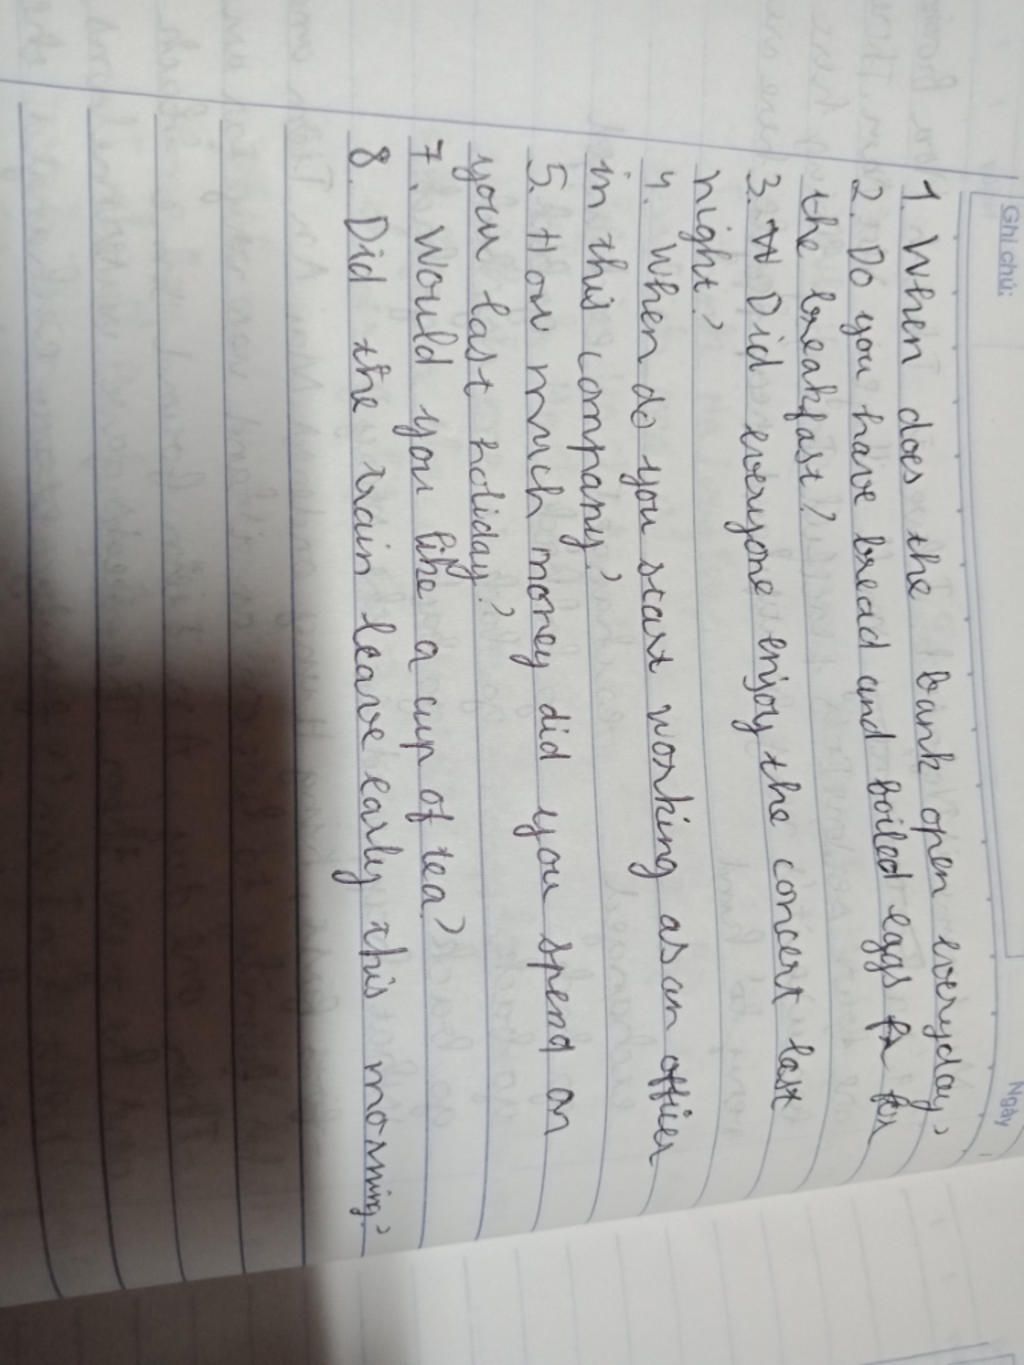 Ghi chú:
Ngày
1. When does the bank open everyday?
2. Do you have bread and boiled eggs for
the breakfast?
3. Did everyone enjoy the concert last
night?
4. When do you start working as an officer
in this company?
5. How much money did you spend on
your last holiday?
7. Would you like a cup of tea?
8. Did the train leave early this morning?